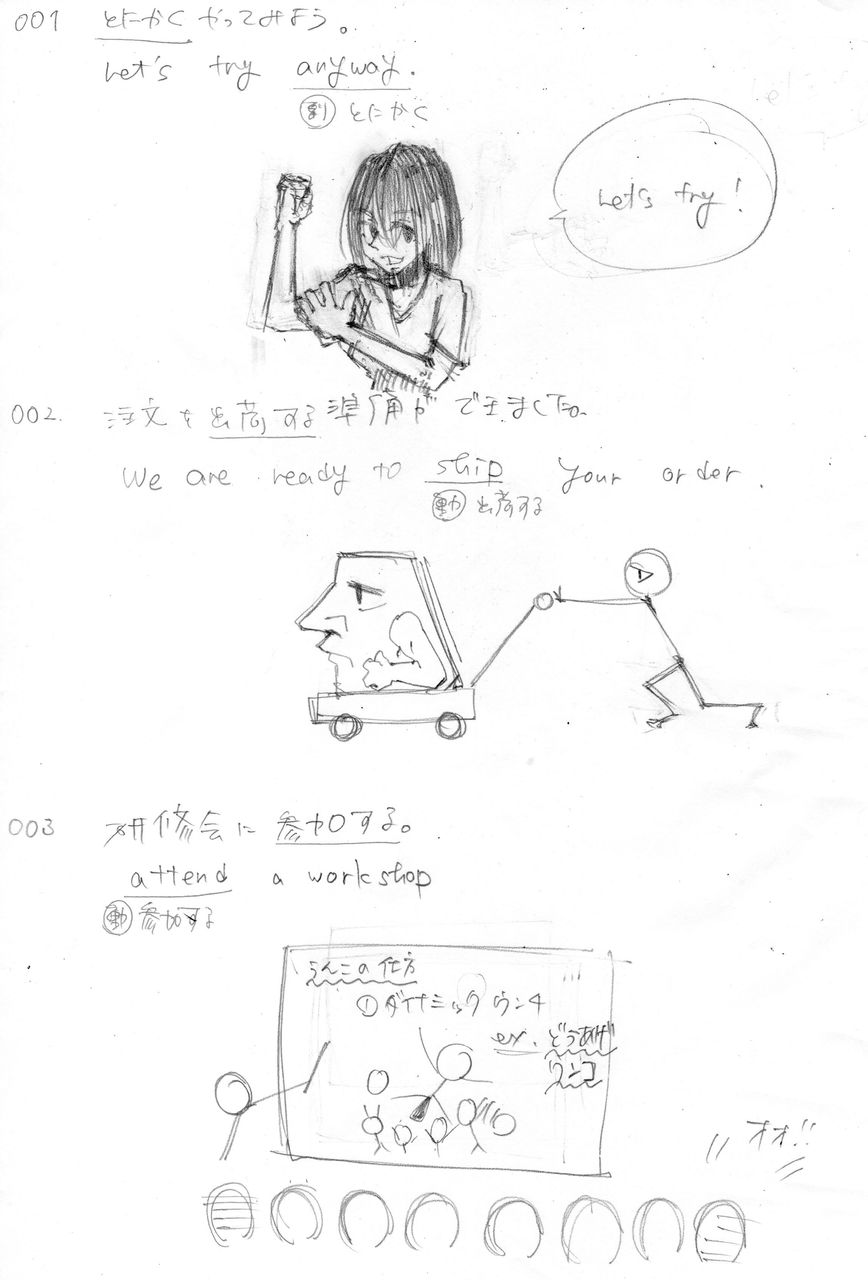 001 とにかくやってみよう。
Let's try anyway.
副 とにかく
Let's try!
002. 注文を出荷する準備ができました。
We are ready to ship your order.
動 出荷する
003 研修会に参加する。
attend a workshop
動 参加する
うんこの仕方
① ダイナミックウンチ
ex. どうあげ
ウンコ
オオ!!